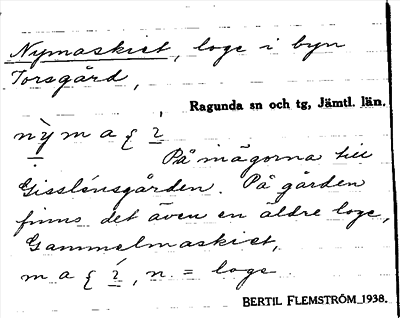 Nymaskiet, loge i byn
Torsgård,
Ragunda sn och tg, Jämtl. län.
På mågorna till
Gisslénsgården. På gården
finns det även en äldre loge,
Gammelmaskiet,
n. = loge
BERTIL FLEMSTRÖM 1938.